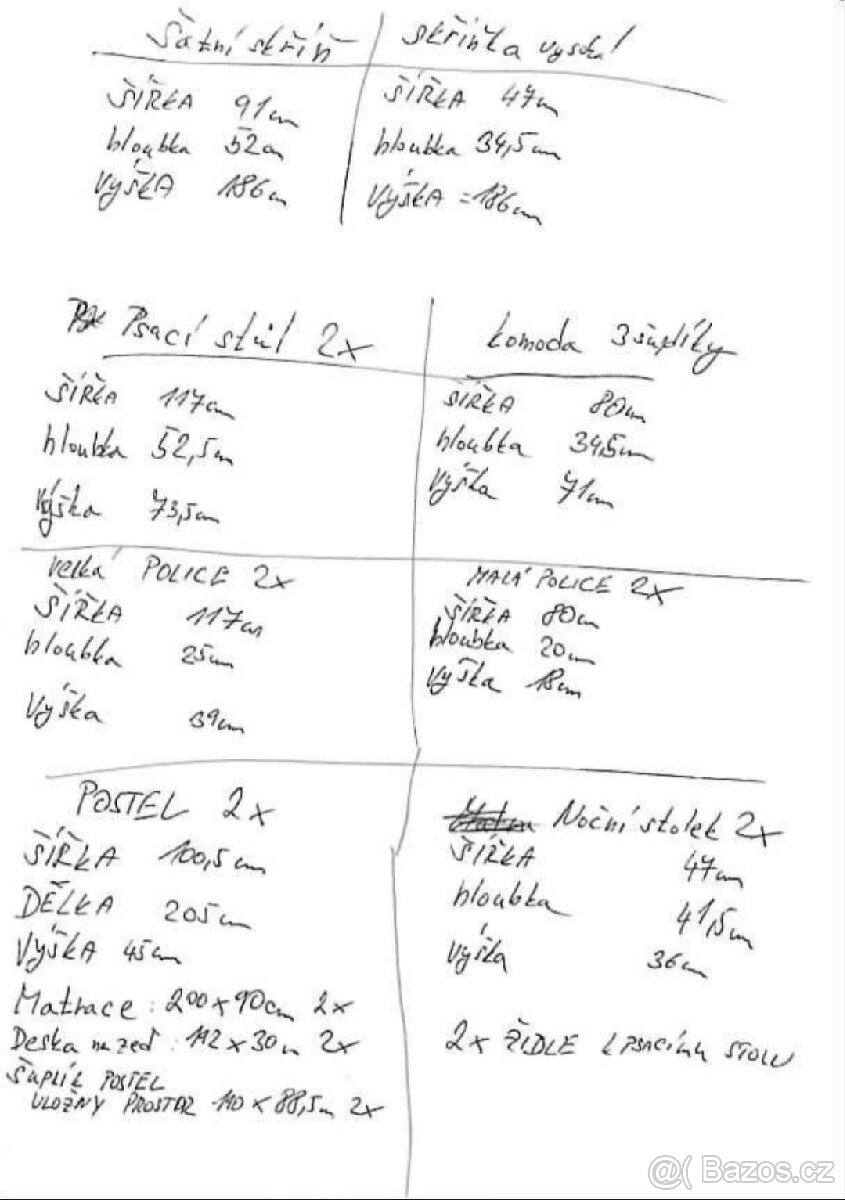 Šatní skříň
ŠÍŘKA 91cm
hloubka 52cm
VÝŠKA 186cm
skříňka vysoká
ŠÍŘKA 47cm
hloubka 34,5cm
VÝŠKA = 186cm
Psací stůl 2x
ŠÍŘKA 117cm
hloubka 52,5cm
Výška 73,5cm
komoda 3 šuplíky
ŠÍŘKA 80cm
hloubka 34,5cm
Výška 71cm
velká POLICE 2x
ŠÍŘKA 117cm
hloubka 25cm
Výška 39cm
MALÁ POLICE 2x
ŠÍŘKA 80cm
hloubka 20cm
Výška 18cm
POSTEL 2x
ŠÍŘKA 100,5cm
DÉLKA 205cm
VÝŠKA 45cm
Matrace : 200 x 90cm 2x
Deska na zeď : 112 x 30cm 2x
ŠUPLÍK POSTEL
ULOŽNY PROSTOR 110 x 88,5cm 2x
Noční stolek 2x
ŠÍŘKA 47cm
hloubka 41,5cm
Výška 36cm
2x ŽIDLE K PSACÍMU STOLU
@( Bazos.cz